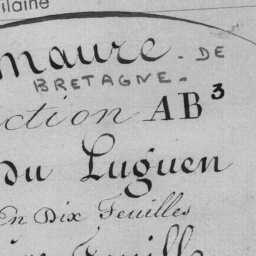 ilaine
maure. DE
BRETAGNE.
ction AB³
du Luguen
En Dix Feuilles
Feuille